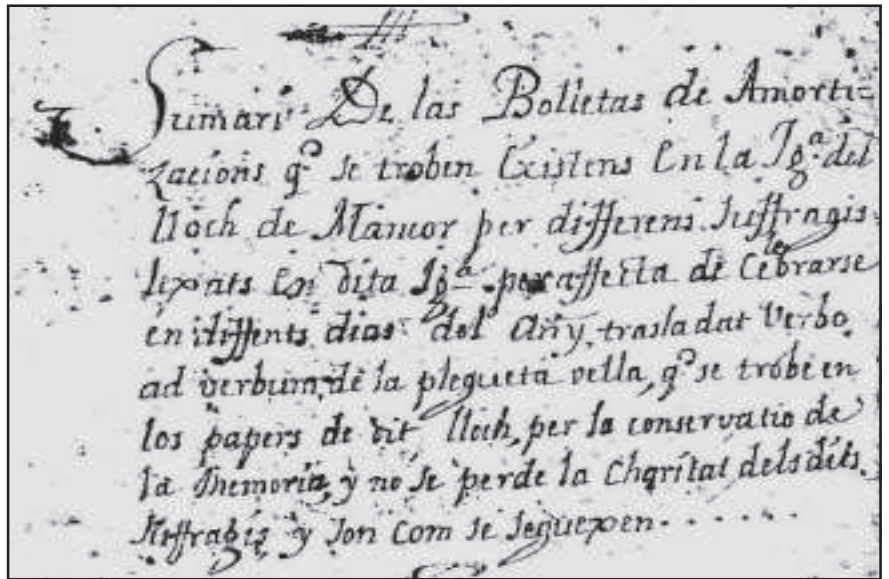 Sumari De las Bolletas de Amorti=
zacions qe. se troben Existens En la Iga. del
lloch de Mancor per differens suffragis
lexats En dita Iga. per affecta de Celebrarse
en diffents dias del Añy, trasladat Verbo
ad verbum, de la plegueta vella, qe. se trobe en
los papers de dit lloch, per la conservatio de
la Memoria, y no se perde la Charitat dels dits
suffragis y son com se seguexen - . . . . .